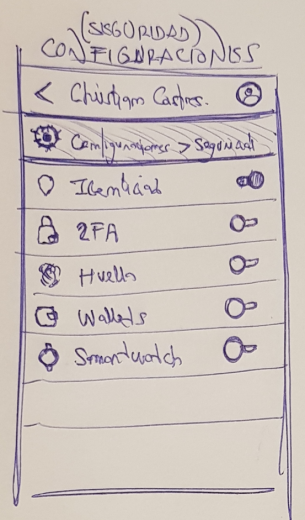 (SEGURIDAD)
CONFIGURACIONES
< Christiam Castros.
Configuraciones > Seguridad
Identidad
2FA
Huella
Wallets
Smartwatch